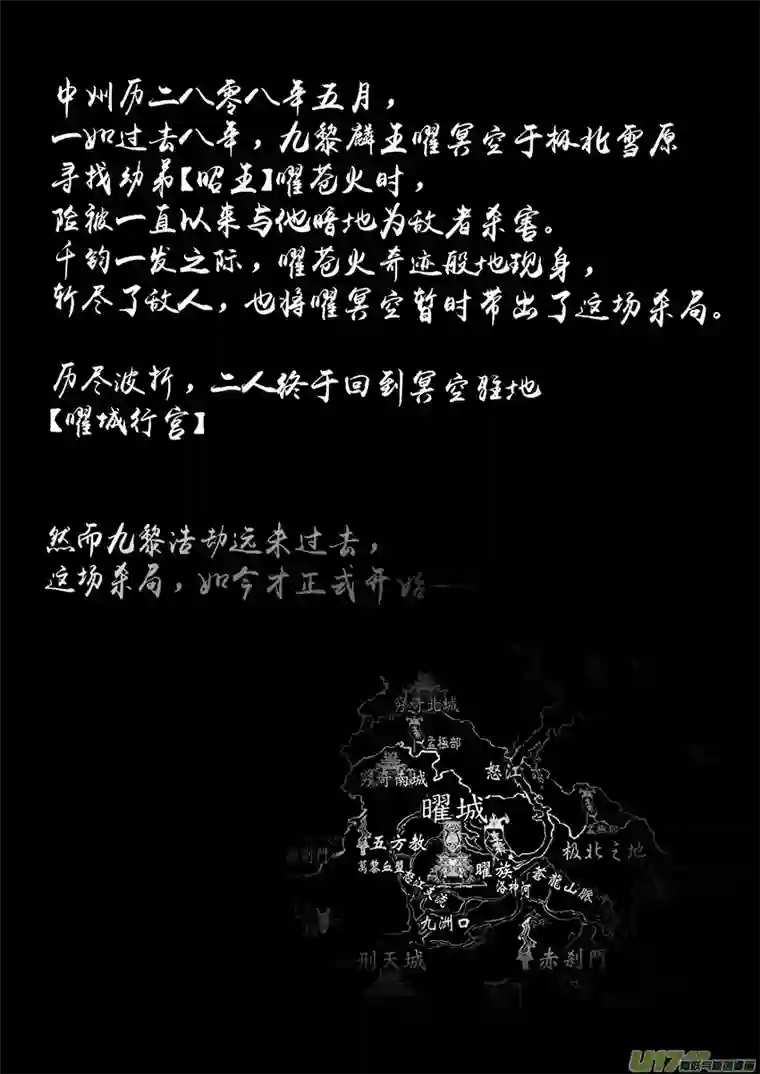 中州历二八零八年五月，
一如过去八年，九黎麟王曜冥空于极北雪原
寻找幼弟【昭王】曜苍火时，
险被一直以来与他暗地为敌者杀害。
千钧一发之际，曜苍火奇迹般地现身，
斩尽了敌人，也将曜冥空暂时带出了这场杀局。
历尽波折，二人终于回到冥空驻地
【曜城行宫】
然而九黎浩劫远未过去，
这场杀局，如今才正式开始——
穷奇北城
孟極部
穷奇南城
怒江
曜城
五方教
極北之地
曜族
萬黎血盟
怒江支流
洛神河
蒼龍山脈
九洲口
刑天城
赤刹門
U17